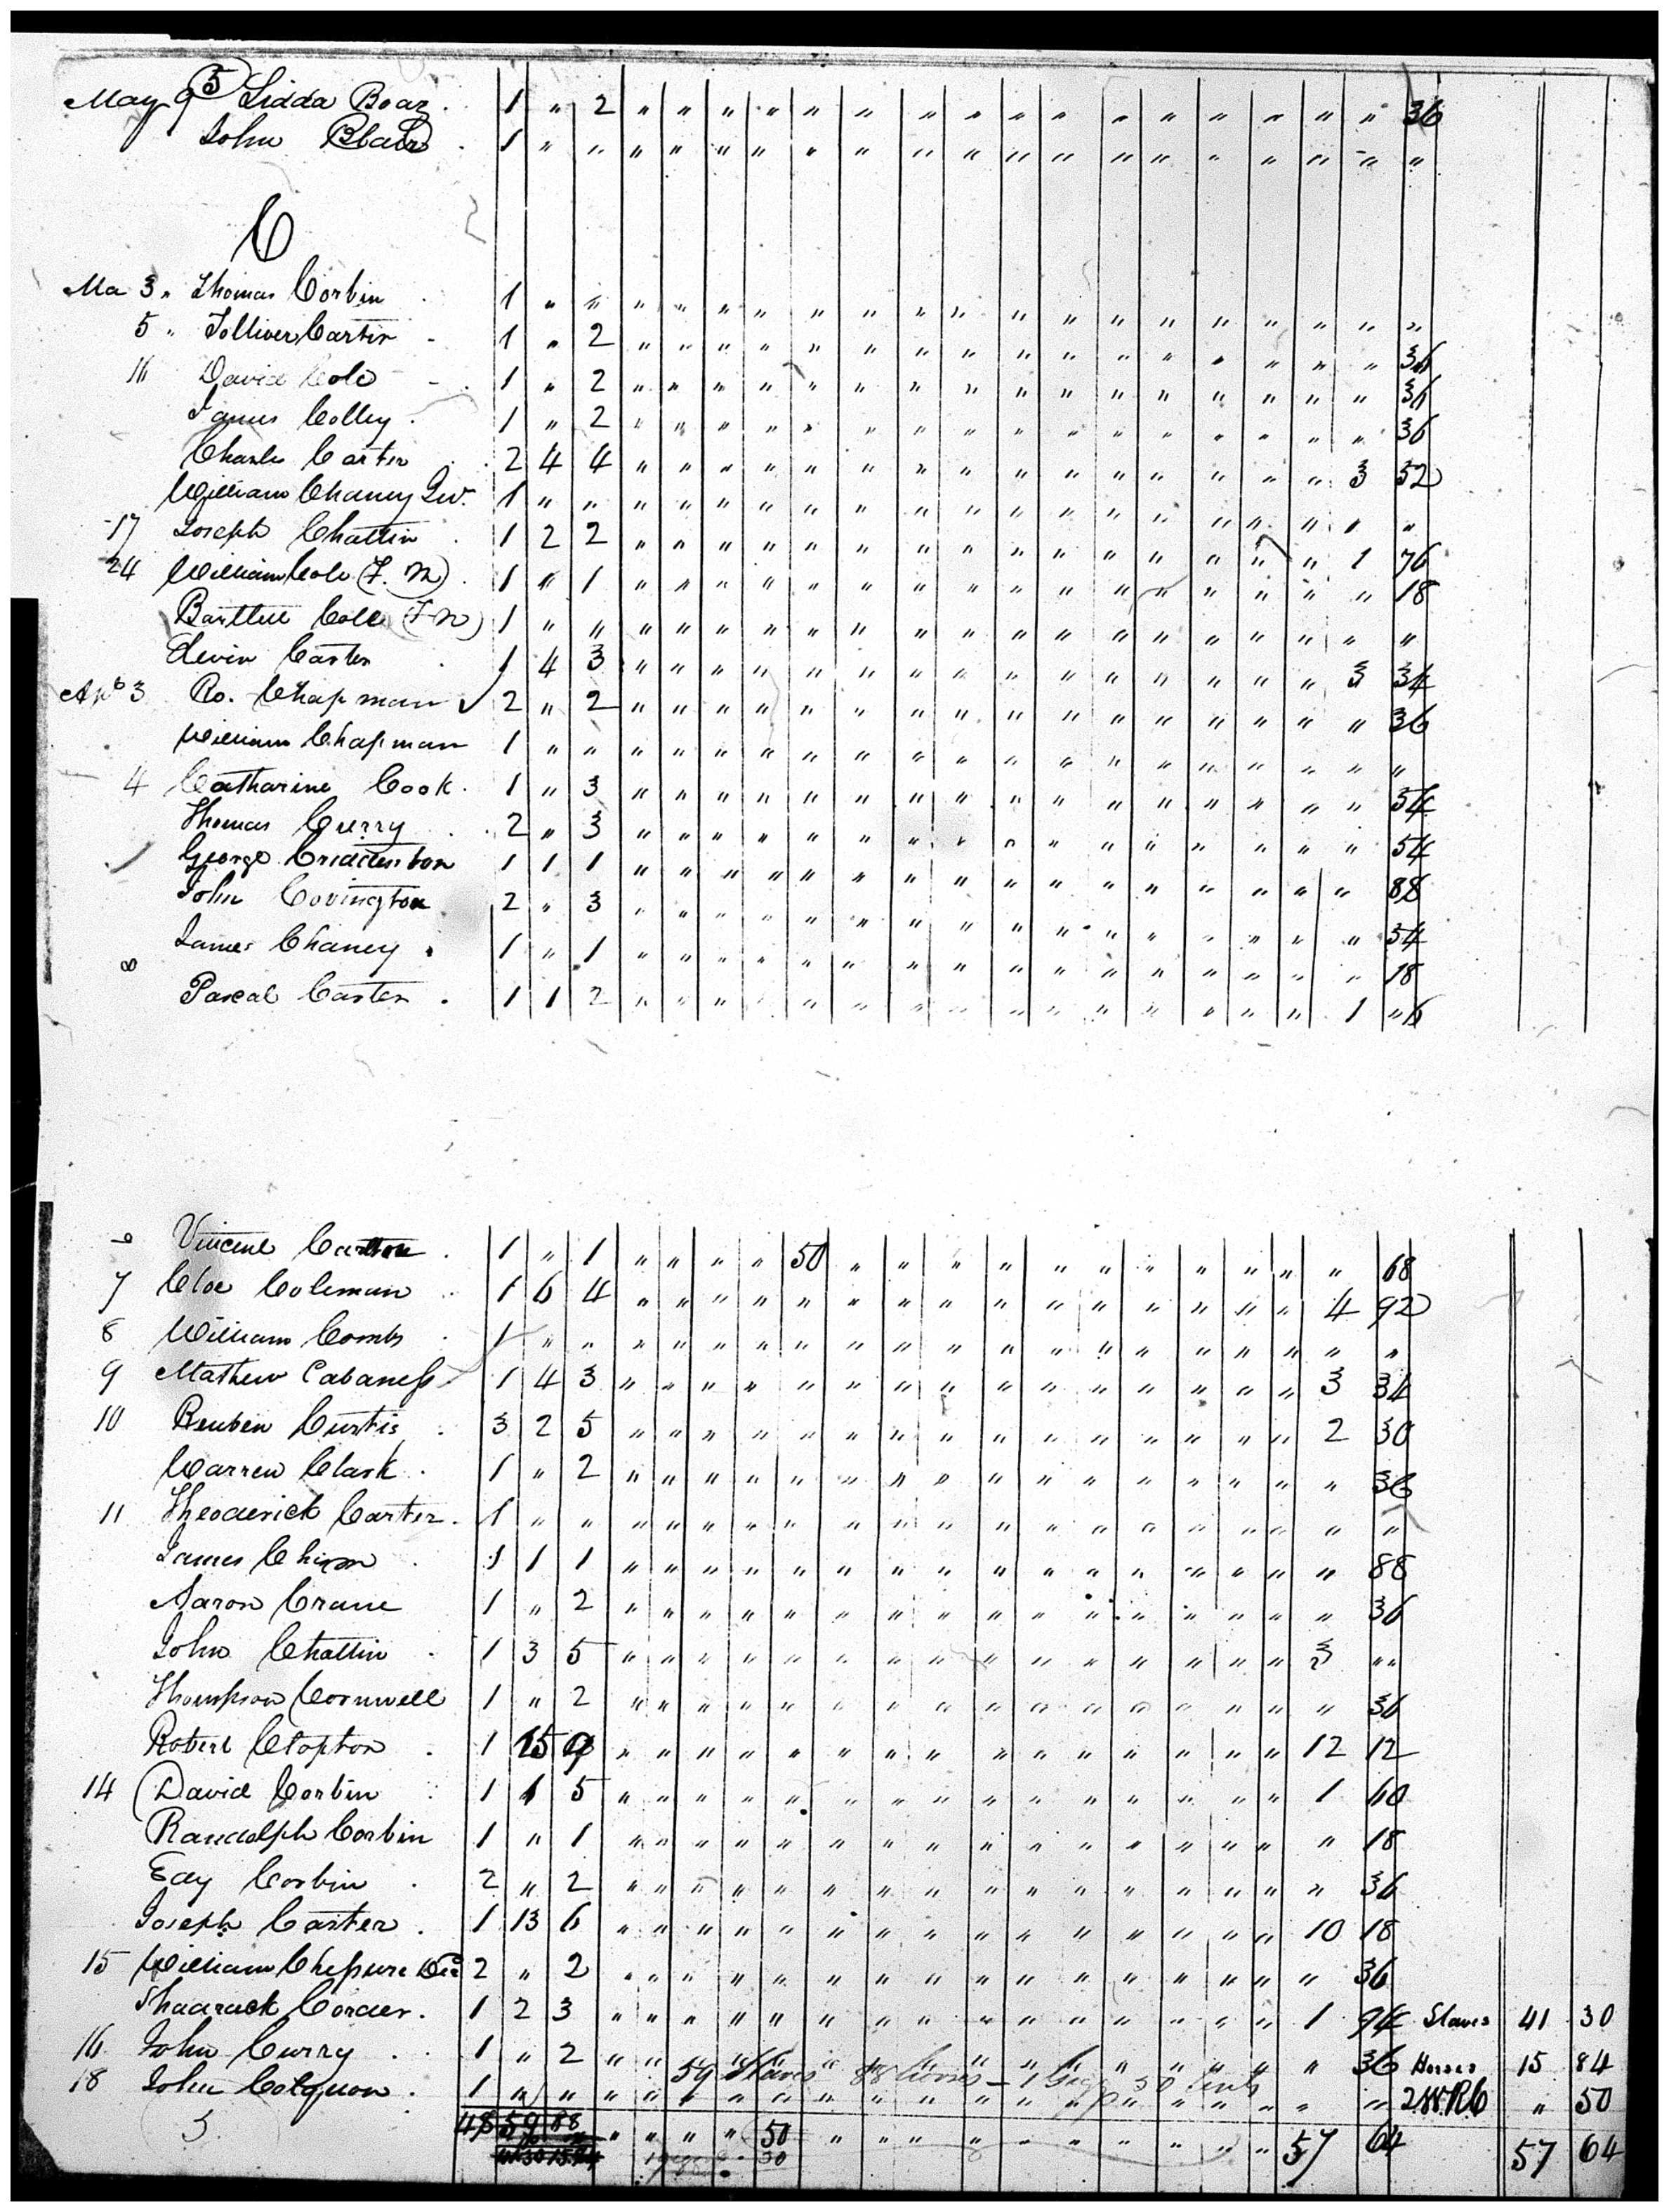 May 9 5 Lidda Boaz . 1 " 2 " " " " " " " " " " " " " " " " 36
John Blair . 1 " " " " " " " " " " " " " " " " " " "
C
Ma 3 " Thomas Corbin . 1 " " " " " " " " " " " " " " " " " " "
5 " Tolliver Carter - 1 " 2 " " " " " " " " " " " " " " " " 36
16 David Cole - . 1 " 2 " " " " " " " " " " " " " " " " 36
James Colley . 1 " 2 " " " " " " " " " " " " " " " " 36
Charles Carter . 2 4 4 " " " " " " " " " " " " " " " 3 52
William Chaney Jur. 1 " " " " " " " " " " " " " " " " " " "
17 Joseph Chattin . 1 2 2 " " " " " " " " " " " " " " " 1 76
24 William Cole (F. N) . 1 " 1 " " " " " " " " " " " " " " " " 18
Bartlett Cole (F N) 1 " " " " " " " " " " " " " " " " " " "
Levin Carter . 1 4 3 " " " " " " " " " " " " " " " 3 34
Apl 3 Ro. Chapman ✓ 2 " 2 " " " " " " " " " " " " " " " " 36
William Chapman 1 " " " " " " " " " " " " " " " " " " "
4 Catharine Cook . 1 " 3 " " " " " " " " " " " " " " " " 54
Thomas Curry . 2 " 3 " " " " " " " " " " " " " " " " 54
George Criddenton 1 1 1 " " " " " " " " " " " " " " " " 88
John Covington 2 " 3 " " " " " " " " " " " " " " " " 54
James Chaney . 1 " 1 " " " " " " " " " " " " " " " " 18
Pascal Carter . 1 1 2 " " " " " " " " " " " " " " " 1 "6
Vincent Carlton . 1 " 1 " " " " 50 " " " " " " " " " " " 68
7 Cloe Coleman . 1 6 4 " " " " " " " " " " " " " " " 4 92
8 William Combs . 1 " " " " " " " " " " " " " " " " " " "
9 Mathew Cabaness 1 4 3 " " " " " " " " " " " " " " " 3 34
10 Reuben Curtis . 3 2 5 " " " " " " " " " " " " " " " 2 30
Warren Clark . 1 " 2 " " " " " " " " " " " " " " " " 36
11 Theoderick Carter . 1 " " " " " " " " " " " " " " " " " " "
James Chism . 1 1 1 " " " " " " " " " " " " " " " " 88
Aaron Crane 1 " 2 " " " " " " " " " " " " " " " " 36
John Chattin . 1 3 5 " " " " " " " " " " " " " " " 3 " "
Thompson Cornwell 1 " 2 " " " " " " " " " " " " " " " " 36
Robert Clopton . 1 15 9 " " " " " " " " " " " " " " " 12 12
14 David Corbin . 1 1 5 " " " " " " " " " " " " " " " 1 60
Randolph Corbin 1 " 1 " " " " " " " " " " " " " " " " 18
Edy Corbin . 2 " 2 " " " " " " " " " " " " " " " " 36
Joseph Carter . 1 13 6 " " " " " " " " " " " " " " " 10 18
15 William 2 " 2 " " " " " " " " " " " " " " " " 36
Shadrack Corder . 1 2 3 " " " " " " " " " " " " " " " 1 94 Slaves 41 30
16 John Curry . . 1 " 2 " " " " " " " " " " " " " " " " 36 Horses 15 84
59 Slaves 88 horses - 1 Gig 50 cents
18 John Colquon . 1 " " " " " " " " " " " " " " " " " " " 2 W.R.C " 50
5 48 59 88 " " " " 50 " " " " " " " " " " 57 64 57 64
41 30 15.84 50